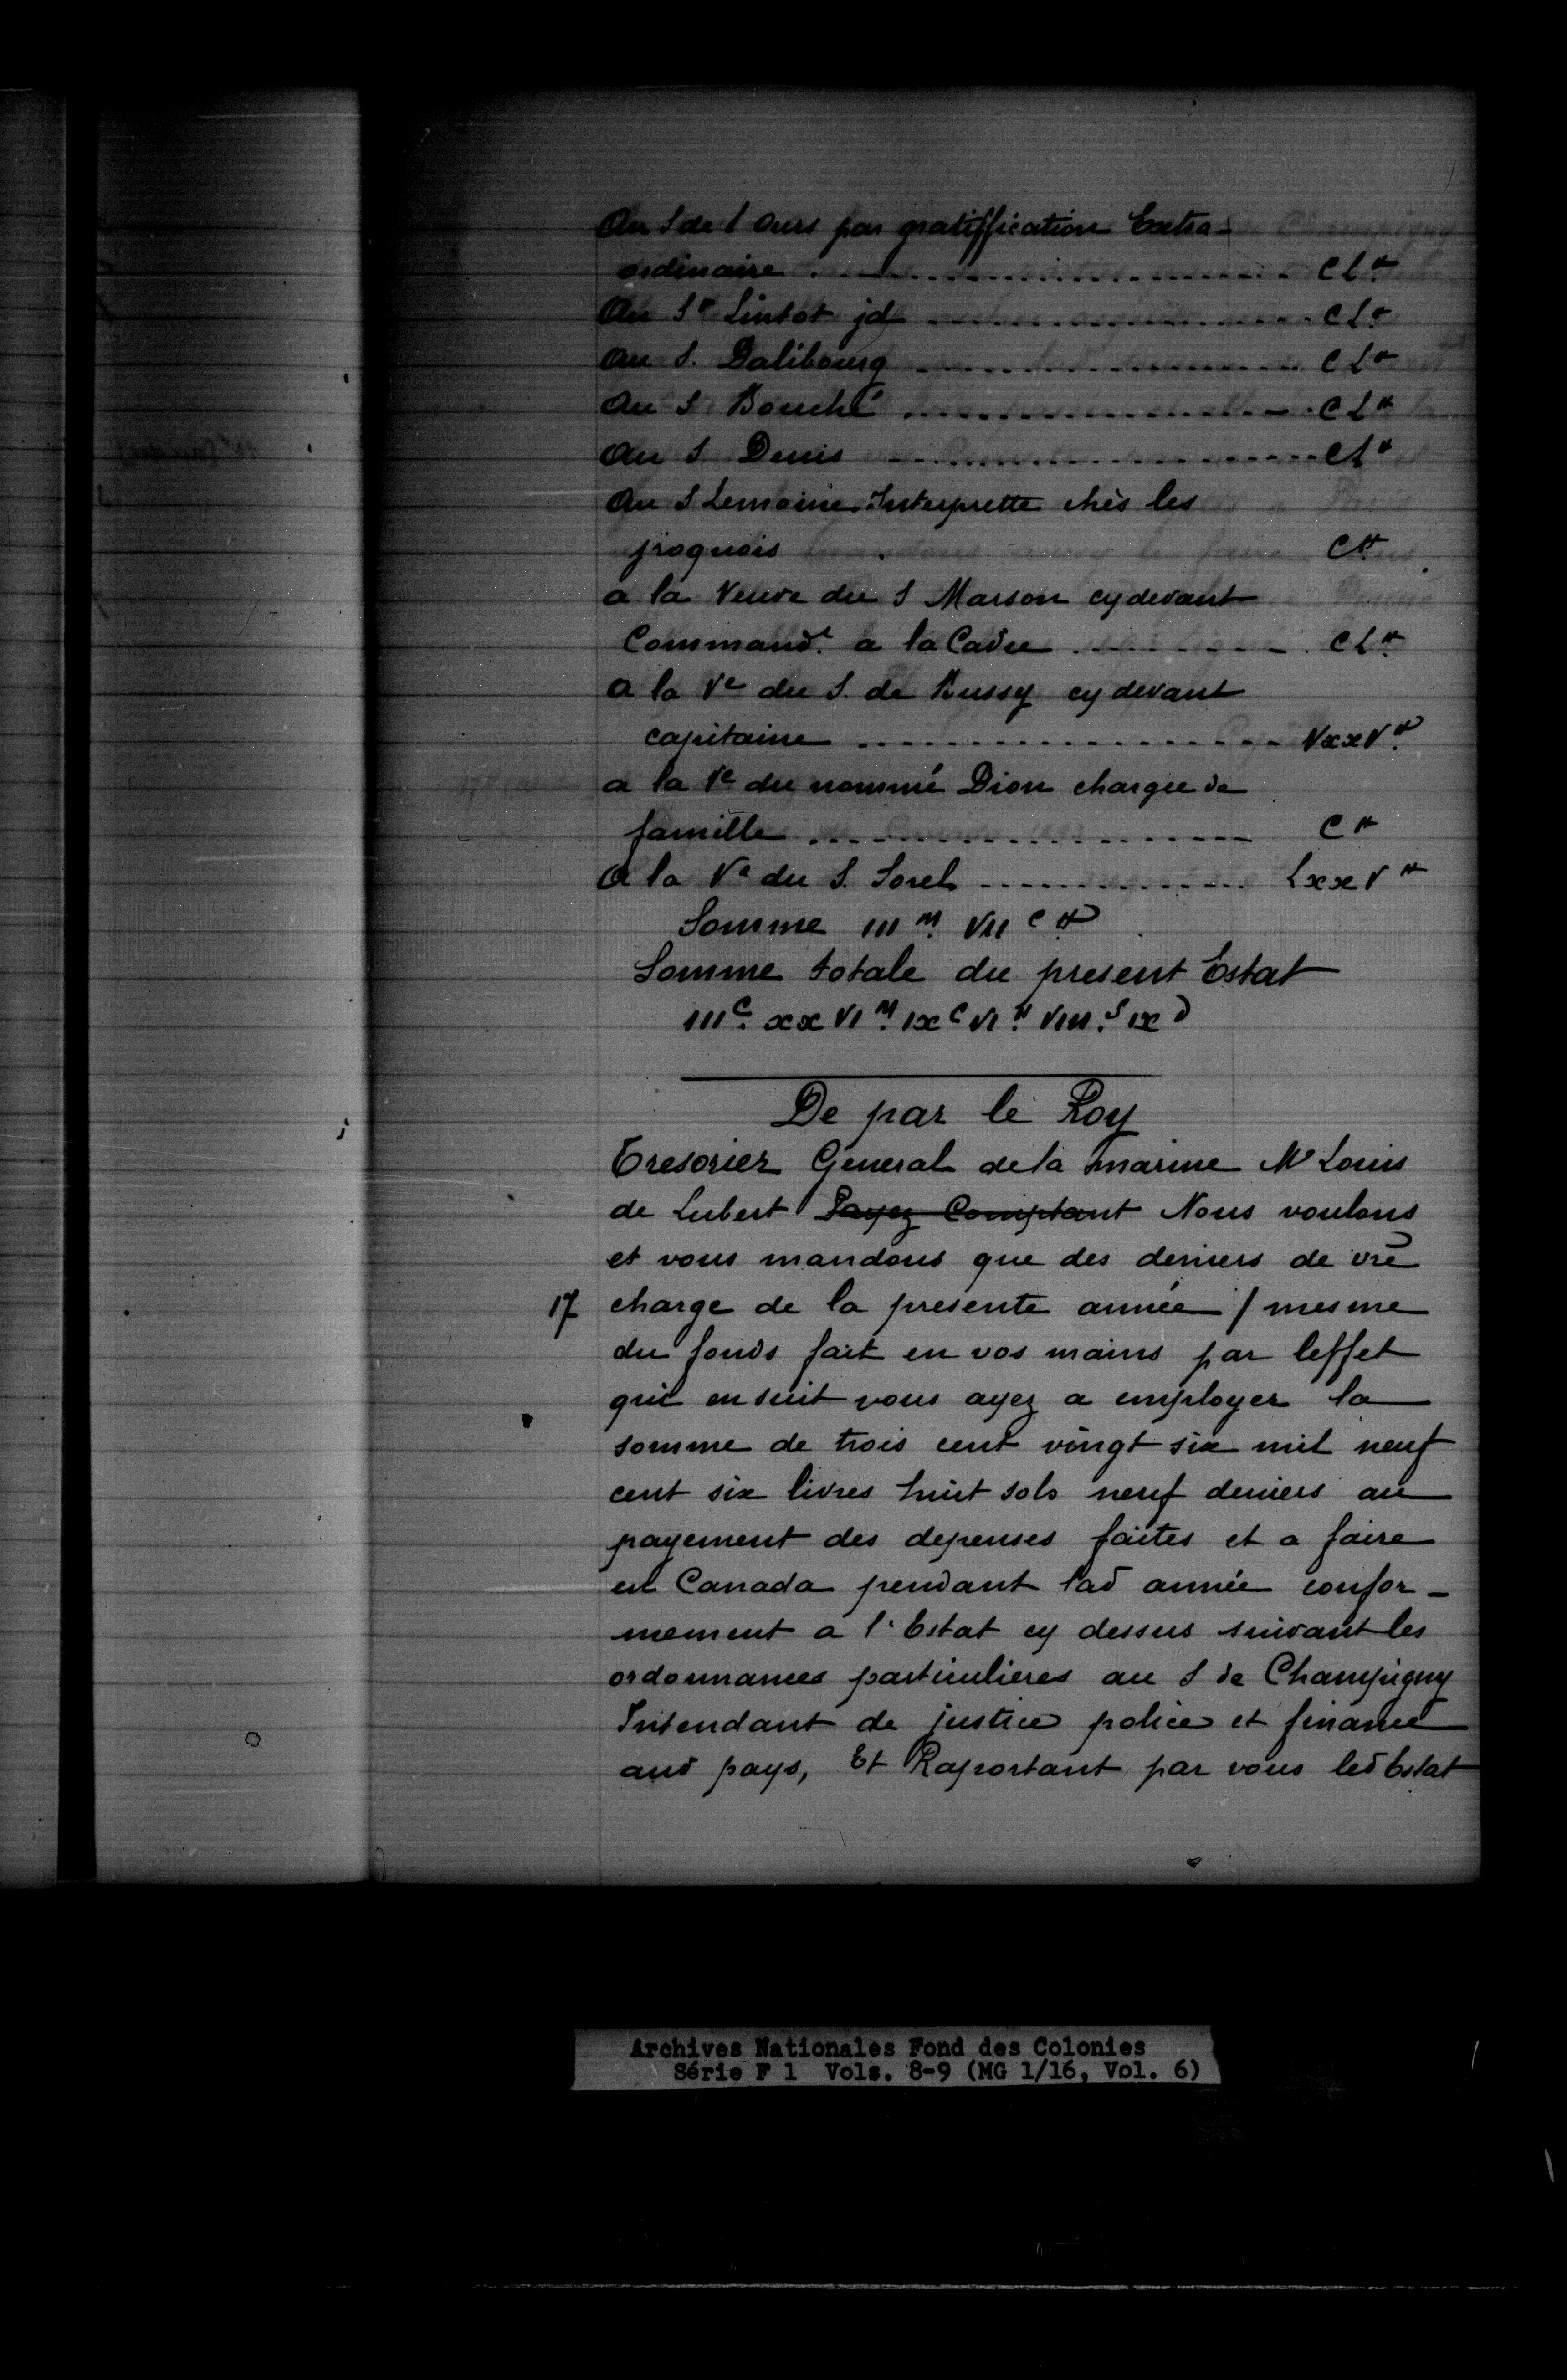 Au S de l ours par gratiffication Extra-
ordinaire .................... CL ₶
Au Sr Lintot jd .................... CL ₶
Au S. Dalibourg .................... CL ₶
Au S Bouché .................... CL ₶
Au S Denis .................... CL ₶
Au S Lemoine Interprette chès les
jroquois C ₶
a la Veuve du S Marson cydevant
Command.t a la Cadie .......... CL ₶
a la Ve du S. de Bussy cy devant
capitaine .................... VxxV ₶
a la Ve du nommé Dion chargee de
famille .................... C ₶
a la Ve du S. Sorel .............. LxxV ₶
Somme III M. VII C ₶
Somme totale du present Estat
III C. xx VI M. IX C VI ₶ VIII. S IX D
De par le Roy
Tresorier General de la marine Me Louis
de Lubert Payez Comptant Nous voulons
et vous mandons que des deniers de vre
17 charge de la presente année / mesme
du fonds fait en vos mains par leffet
qui en suit vous ayez a employer la
somme de trois cent vingt six mil neuf
cent six livres huit sols neuf deniers au
payement des depenses faites et a faire
en Canada pendant lad année confor-
mement a l'Estat cy dessus suivant les
ordonnances particulieres au S de Champigny
Intendant de justice police et finance
aud pays, Et Raportant par vous led Estat
Archives Nationales Fond des Colonies
Série F 1 Vols. 8-9 (MG 1/16, Vol. 6)